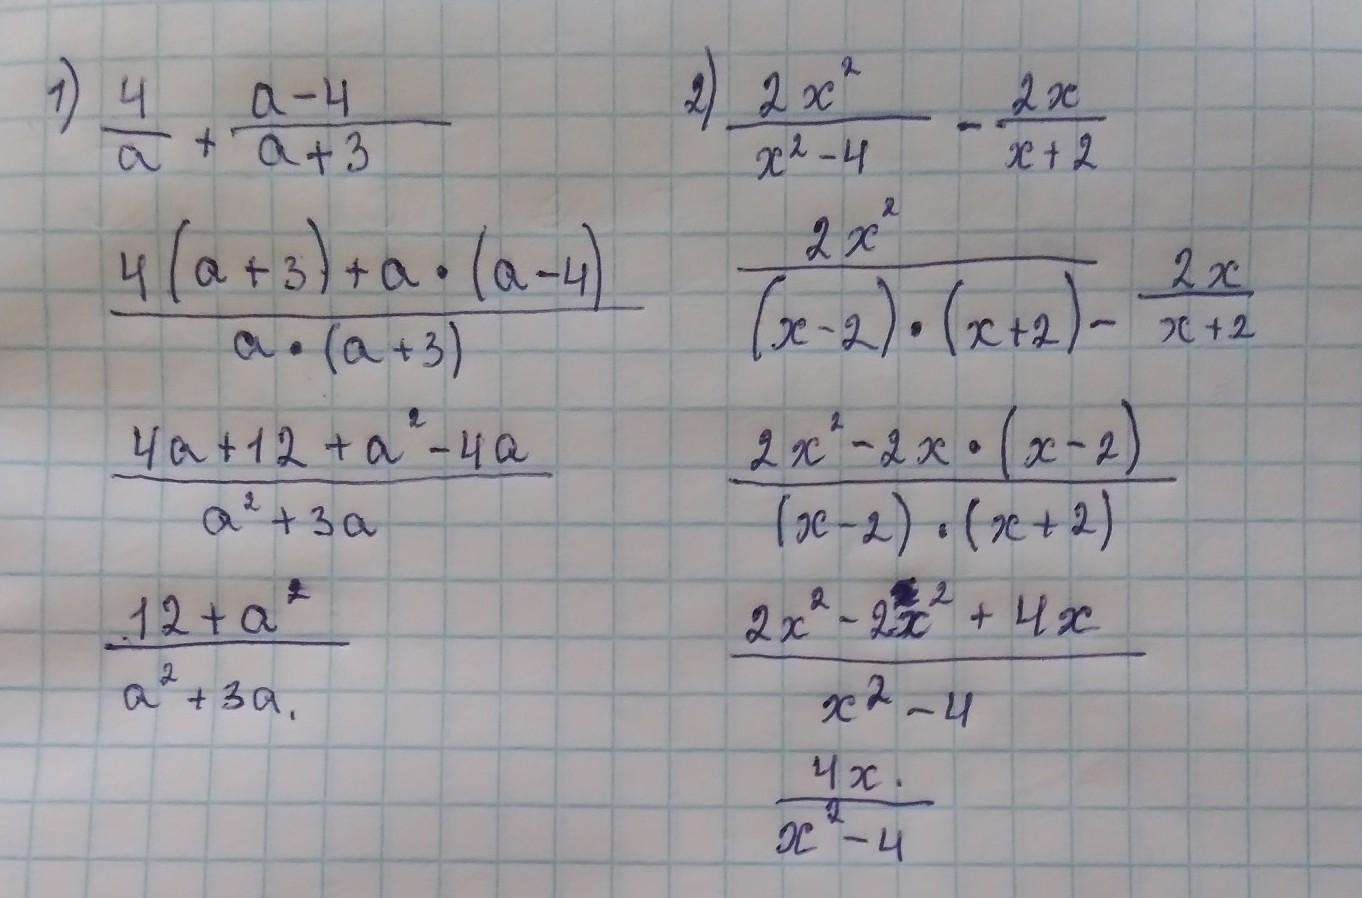 1) 4/a + (a-4)/(a+3)
(4(a+3)+a·(a-4))/(a·(a+3))
(4a+12+a²-4a)/(a²+3a)
(12+a²)/(a²+3a).
2) 2x²/(x²-4) - 2x/(x+2)
2x²/((x-2)·(x+2)) - 2x/(x+2)
(2x²-2x·(x-2))/((x-2)·(x+2))
(2x²-2x²+4x)/(x²-4)
4x./(x²-4)